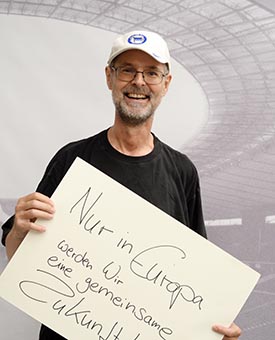 Nur in Europa
werden wir
eine gemeinsame
Zukunft